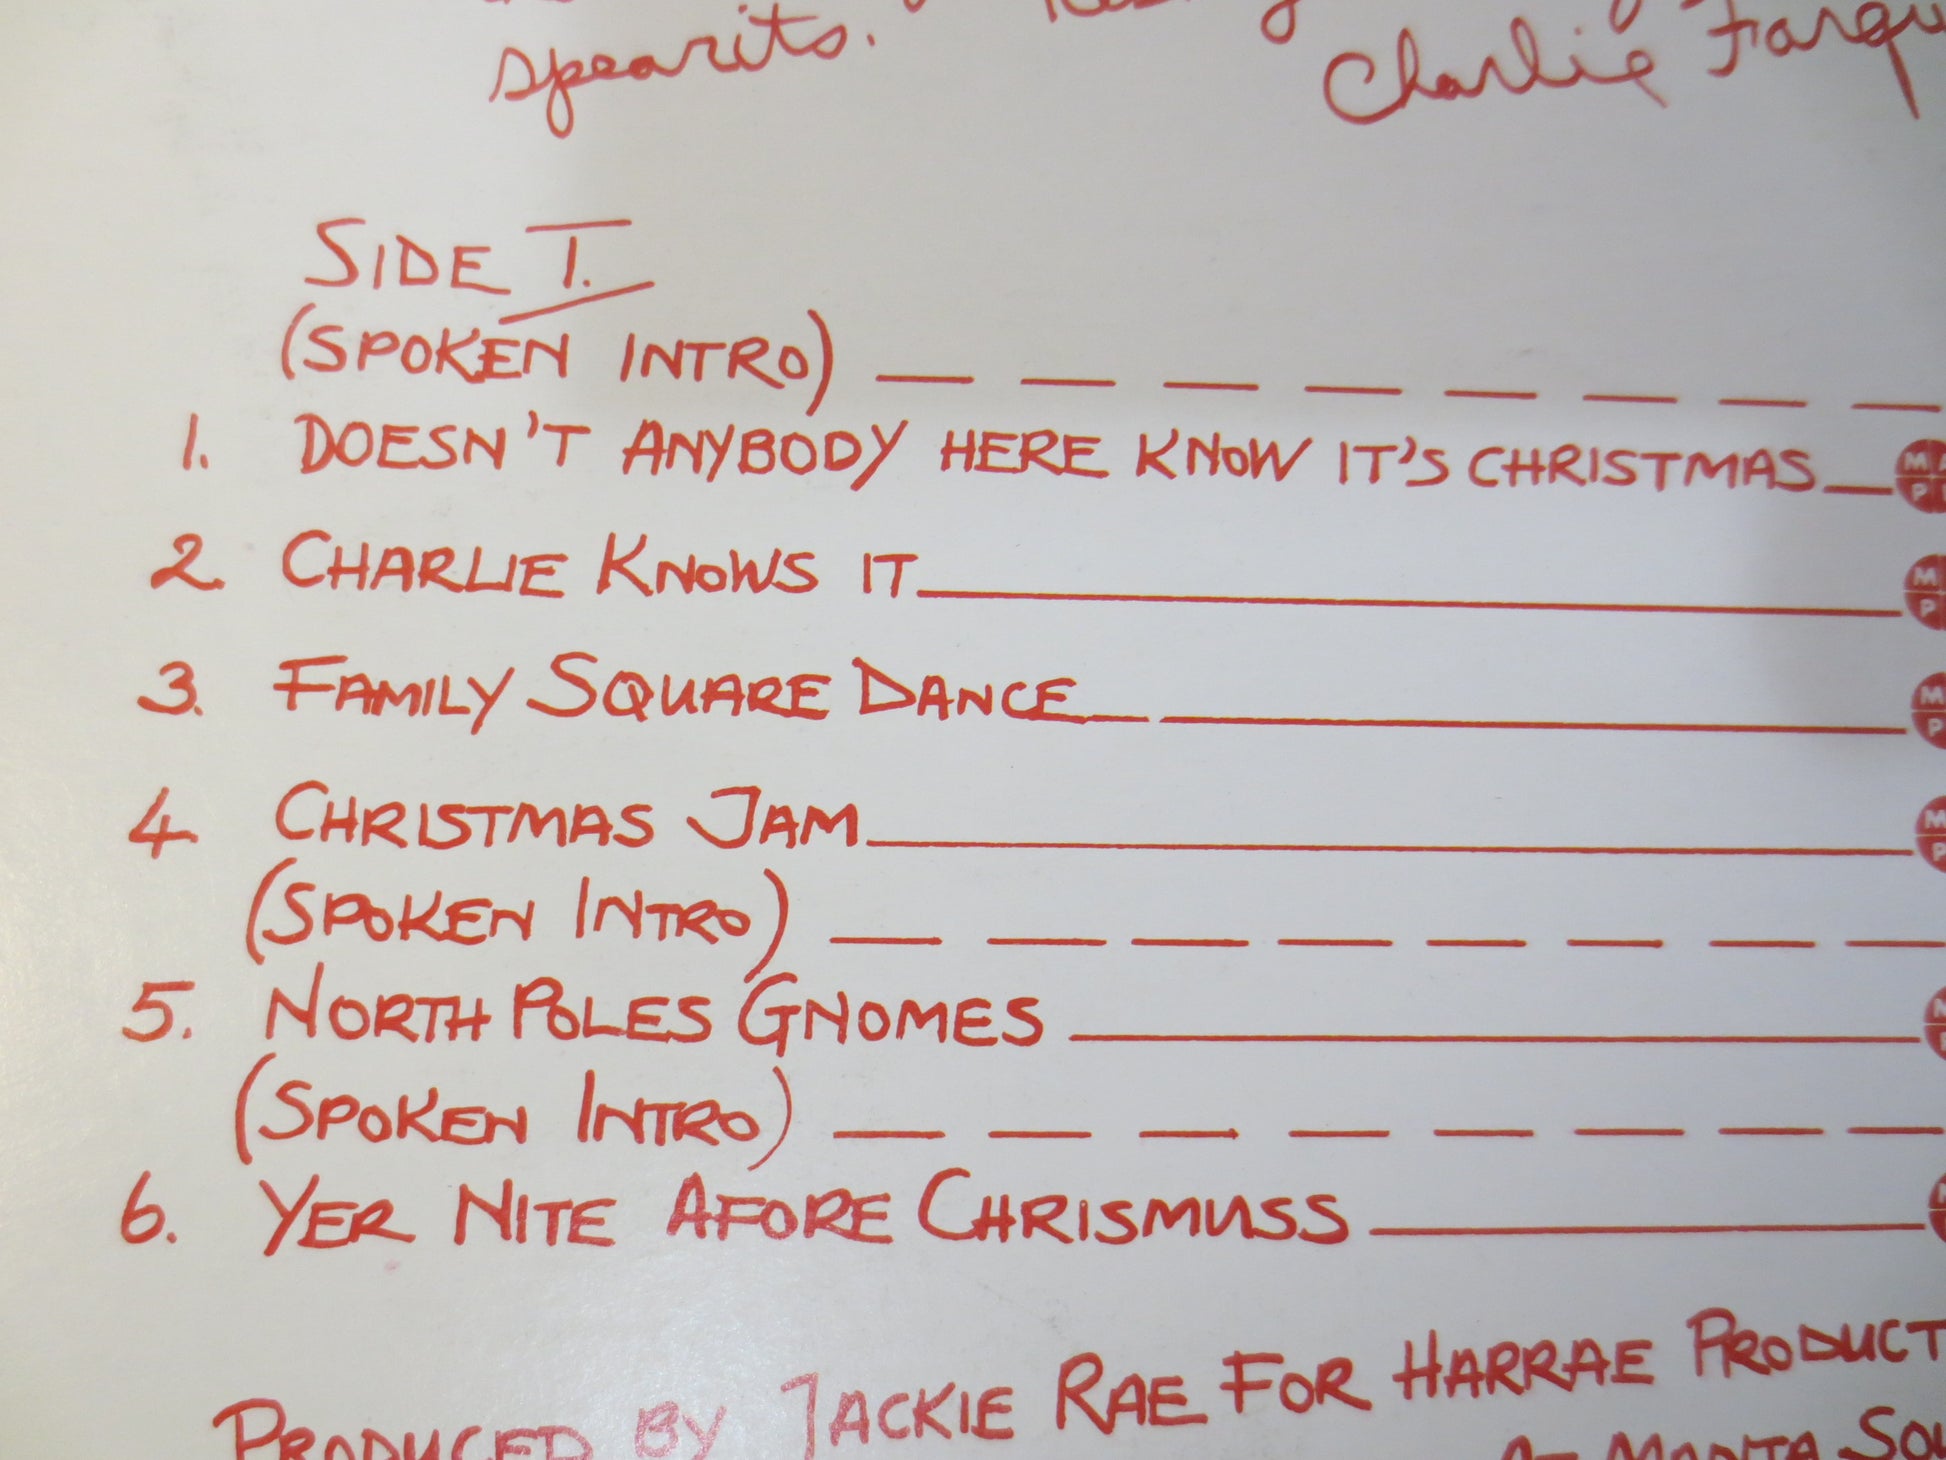 spearits.
Charlie
SIDE I.
(SPOKEN INTRO) _ _ _ _ _ _ _ _
1. DOESN'T ANYBODY HERE KNOW IT'S CHRISTMAS
2. CHARLIE KNOWS IT
3. FAMILY SQUARE DANCE
4. CHRISTMAS JAM
(SPOKEN INTRO) _ _ _ _ _ _ _ _
5. NORTH POLES GNOMES
(SPOKEN INTRO) _ _ _ _ _ _ _ _
6. YER NITE AFORE CHRISMUSS
PRODUCED BY JACKIE RAE FOR HARRAE PRODUCT
AT MANTA SOU